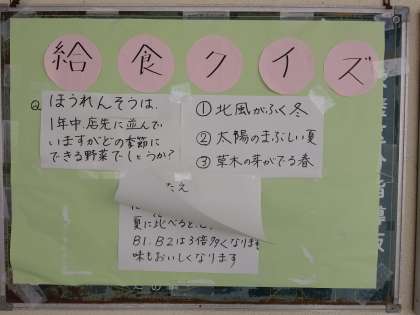 給食クイズ
Q. ほうれんそうは、
1年中、店先に並んで
いますがどの季節に
できる野菜でしょうか?
① 北風がふく冬
② 太陽のまぶしい夏
③ 草木の芽がでる春
たえ
夏に比べると、
B1、B2は3倍多くなります
味もおいしくなります